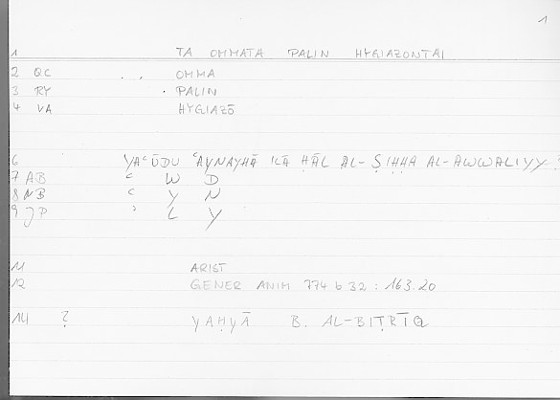 1
1 TA OMMATA PALIN HYGIAZONTAI
2 QC . . OMMA
3 RY . PALIN
4 VA HYGIAZŌ
6 YAʿŪDU ʿAYNAYHĀ ILĀ ḤĀL AL-ṢIḤḤA AL-AWWALIYY
7 AB ʿ W D
8 NB ʿ Y N
9 JP ʾ L Y
11 ARIST
12 GENER ANIM 774 b 32 : 163.20
14 ? YAḤYĀ B. AL-BIṬRĪQ